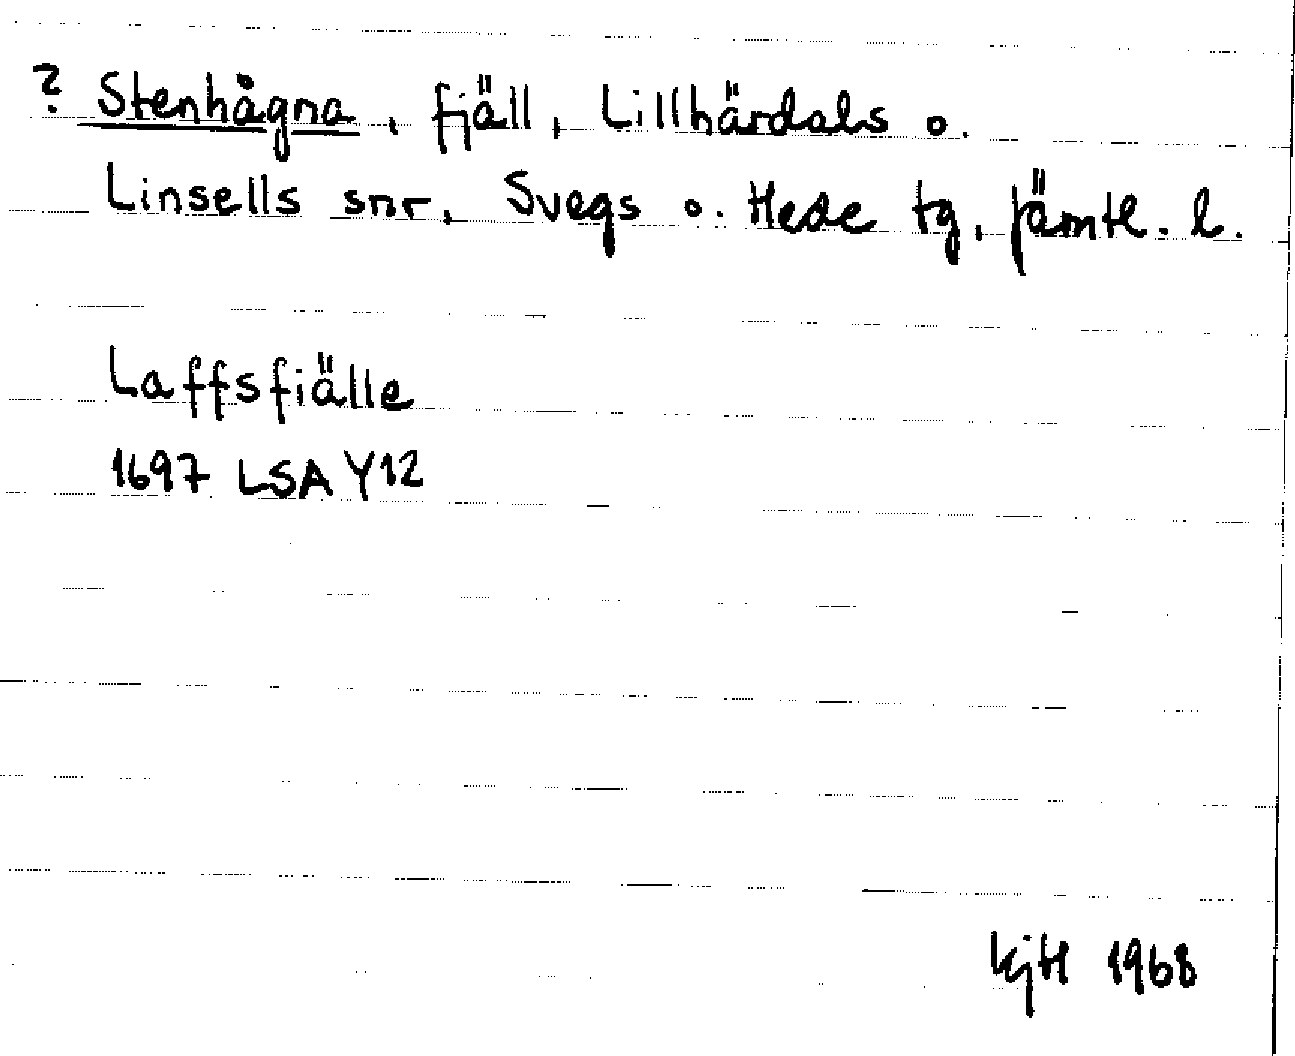 ? Stenhågna, fjäll, Lillhärdals o.
Linsells snr, Svegs o. Hede tg, Jämtl. l.
Laffsfiälle
1697 LSA Y12
KjH 1968